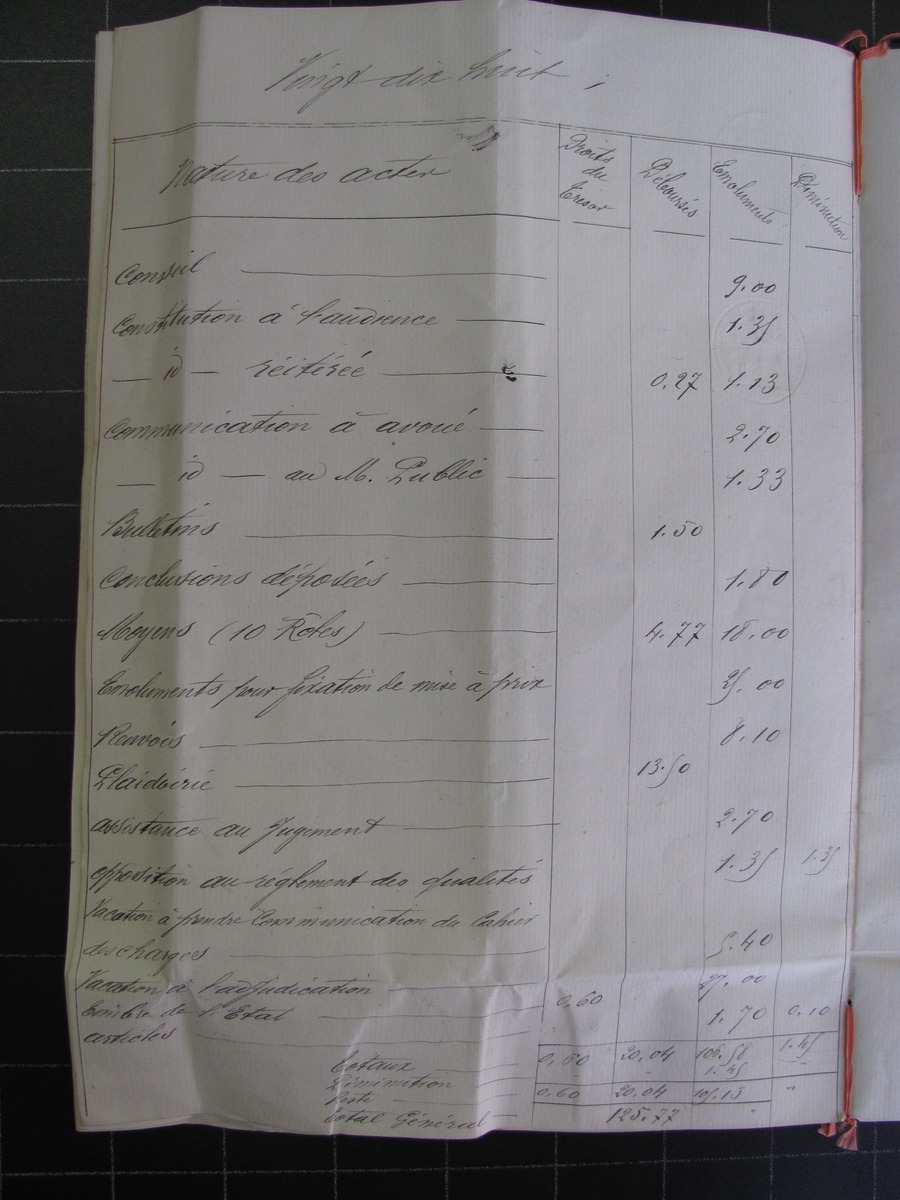 Vingt dix huit ;
Nature des actes Droits du Trésor Déboursés Emoluments Diminution
Conseil 9.00
Constitution à l'audience 1.35
— id — réitérée 0.27 1.13
Communication à avoué 2.70
— id — au M. Public 1.33
Bulletins 1.50
Conclusions déposées 1.80
Moyens (10 Rôles) 4.77 18.00
Emoluments pour fixation de mise à prix 25.00
Renvois 8.10
Plaidoirie 13.50
assistance au Jugement 2.70
opposition au règlement des qualités 1.35 1.35
Vacation à prendre Communication du Cahier
des charges 5.40
Vacation à l'adjudication
Timbre de l'Etat 0.60
articles 1.70 0.10
Totaux 0.60 20.04 106.58 1.45
Diminution 1.45 "
Reste 0.60 20.04 105.13 "
Total Général 125.77 "